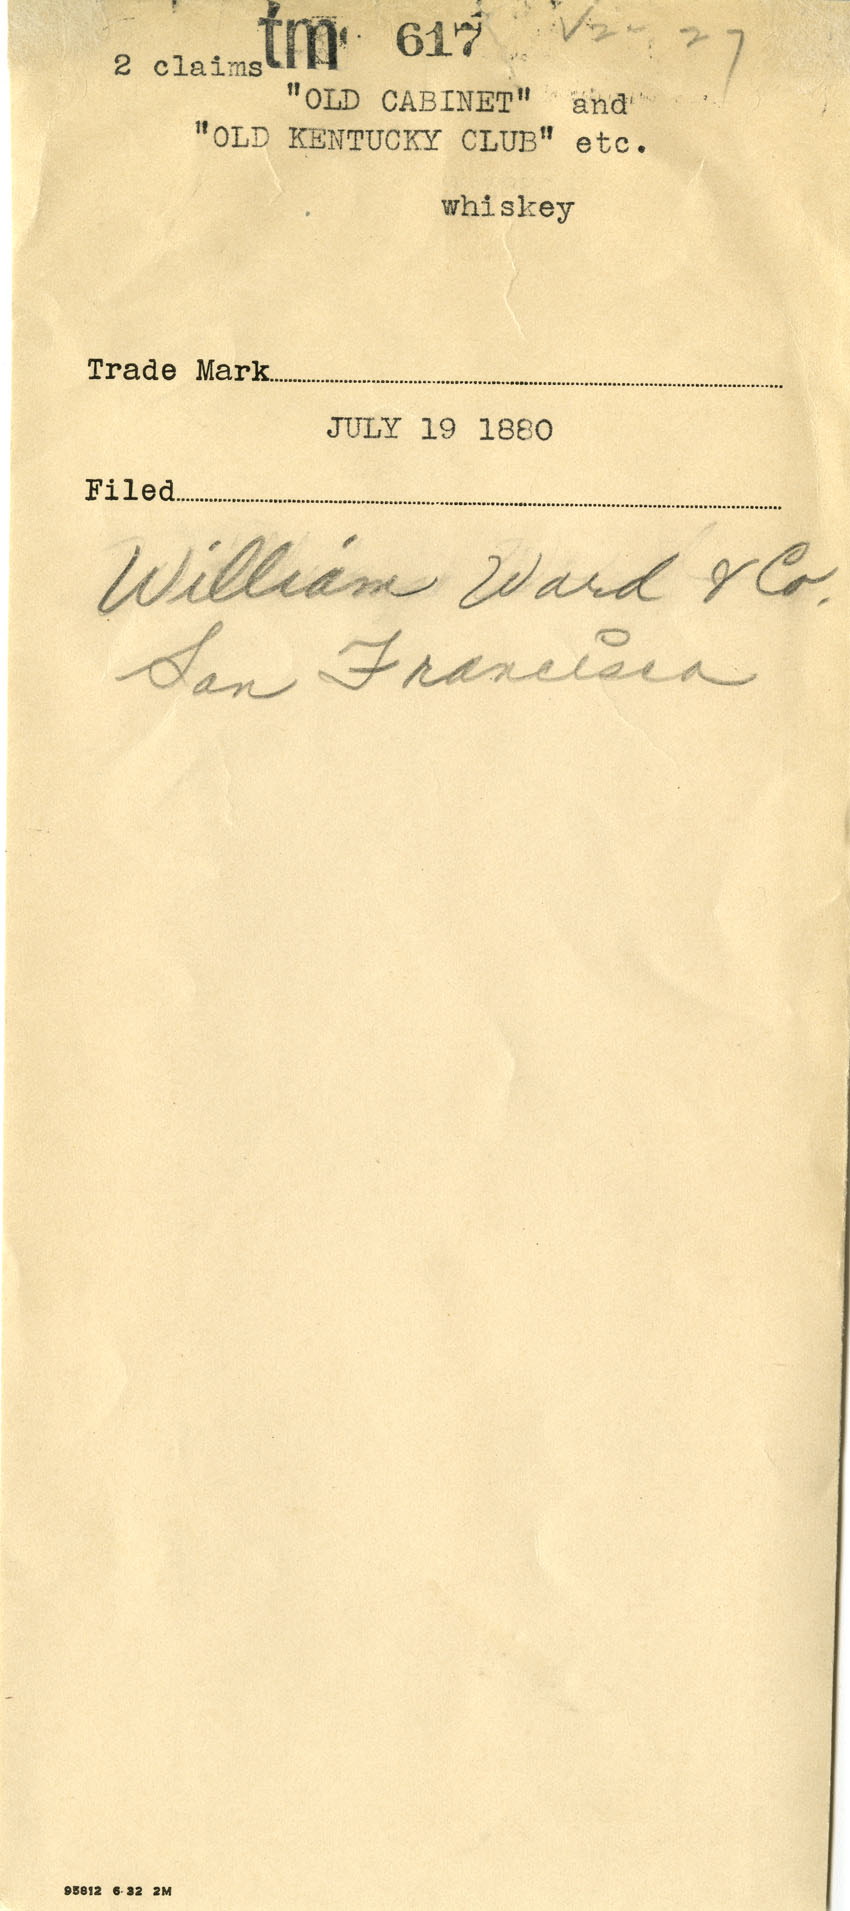 tm 617
2 claims
"OLD CABINET" and
"OLD KENTUCKY CLUB" etc.
whiskey
Trade Mark
JULY 19 1880
Filed
William Ward & Co.
San Francisco
95812 6-32 2M